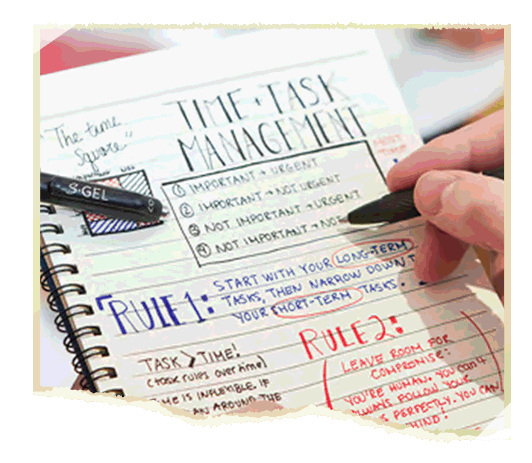 "The time
Square"
TIME + TASK
MANAGEMENT
S·GEL
① IMPORTANT + URGENT
② IMPORTANT + NOT URGENT
③ NOT IMPORTANT + URGENT
④ NOT IMPORTANT + NOT
RULE 1:
START WITH YOUR LONG-TERM
TASKS, THEN NARROW DOWN T
YOUR SHORT-TERM TASKS.
RULE 2:
TASK > TIME!
(task rules over time)
TIME IS INFLEXIBLE. IF
AN AROUND THE
LEAVE ROOM FOR
COMPROMISE:
YOU'RE HUMAN. YOU CAN'T
ALWAYS FOLLOW YOUR
S PERFECTLY. YOU CAN